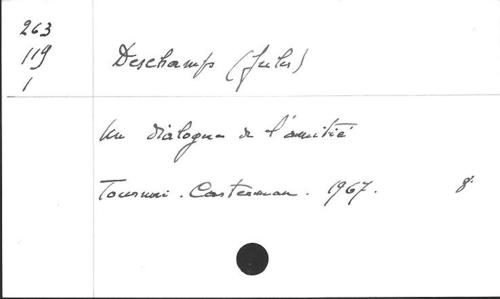 263
119
1
Deschamps (Jules)
Un dialogue de l'amitié
Tournai. Casterman. 1967. 8°